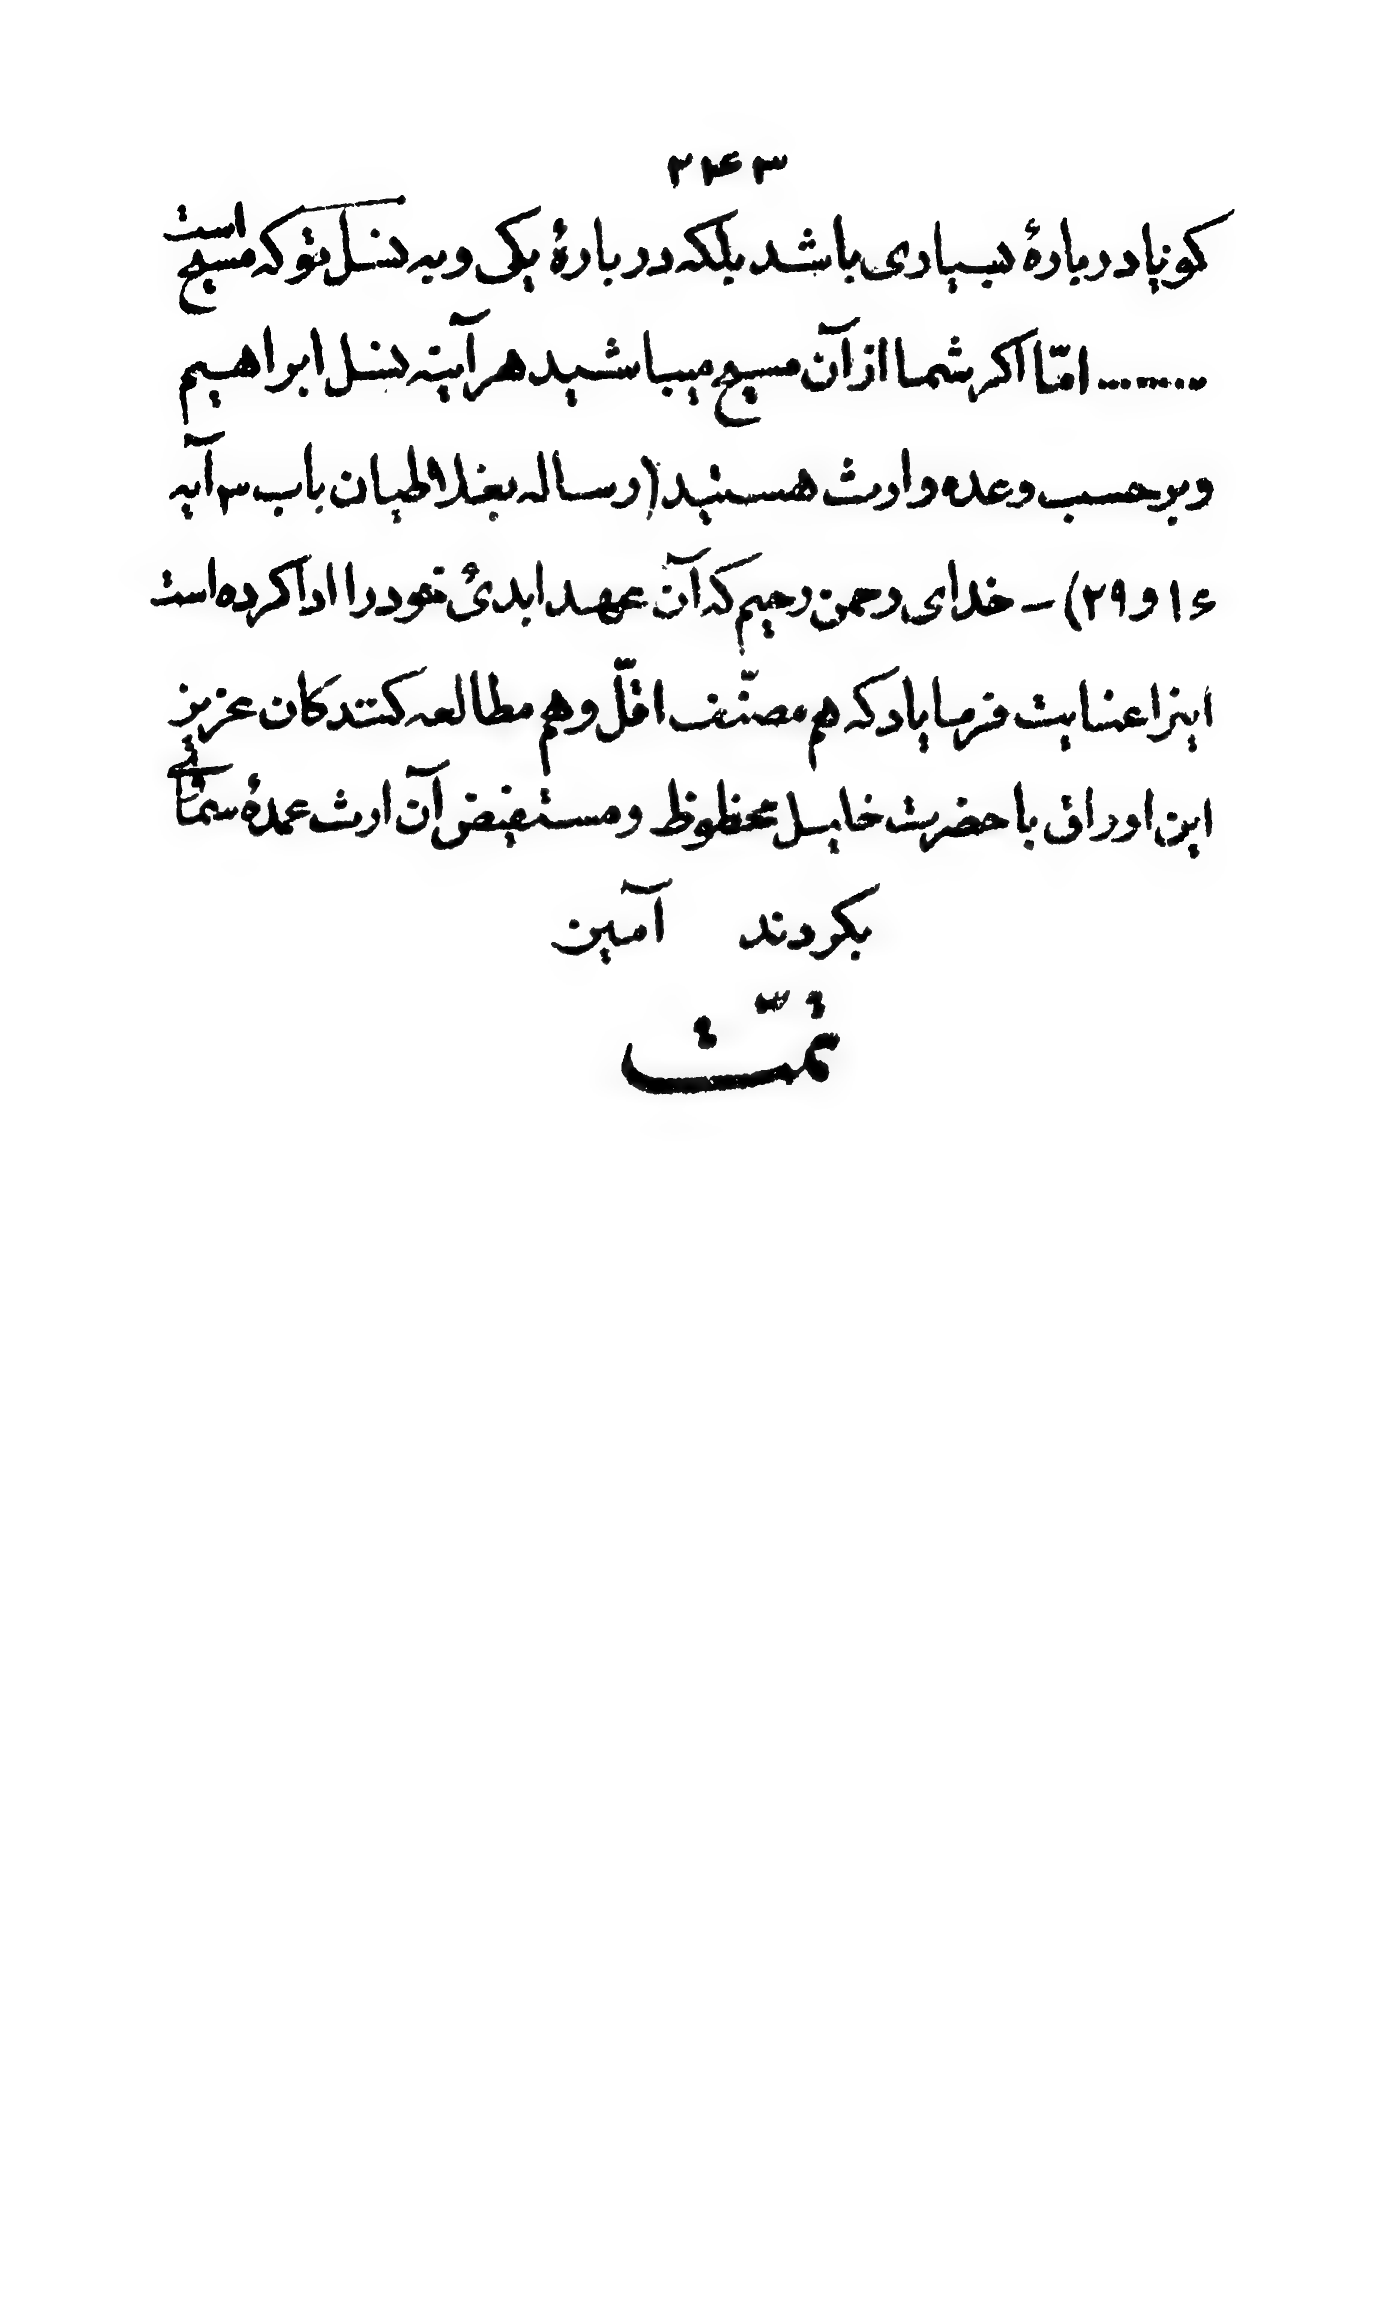 ۲۴۳
کویا دربارهٔ بسیاری باشد بلکه دربارهٔ یکی و به نسل تو که مسیح است
......... امّا اکر شما از آن مسیح میباشید هر آینه نسل ابراهیم
و بر حسب وعده وارث هستید (رساله بغلاطیان باب ۳ آیه
۱۶ و ۲۹) — خدای رحمن رحیم که آن عهد ابدیٔ خود را ادا کرده است
اینرا عنایت فرمایاد که هم مصنّف اقلّ و هم مطالعه کنندکان عزیز
این اوراق با حضرت خلیل محظوظ و مستفیض آن ارث عمدهٔ سمائی
بکردند آمین
تمّت